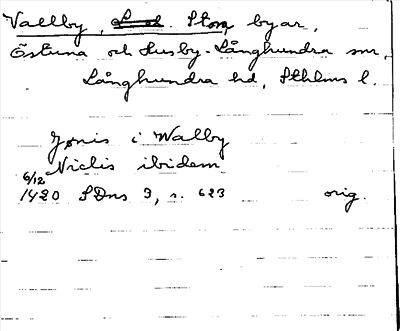 Vallby, Stora, byar,
Östuna och Husby-Långhundra snr,
Långhundra hd, Sthlms l.
Jønis i Walby
Niclis ibidem
6/12
1420 SDns 3, s. 623 orig.